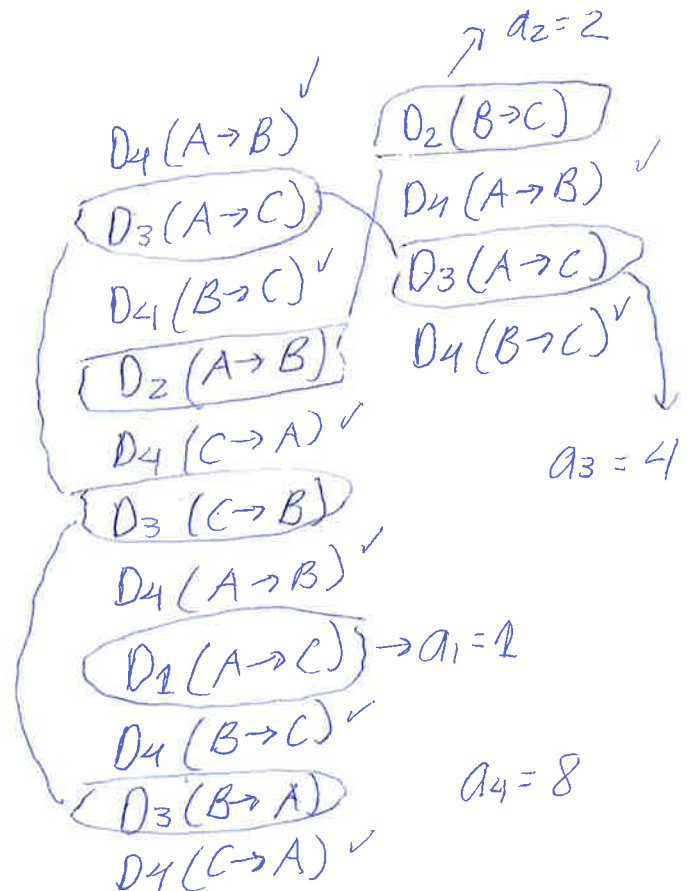 D4 (A→B) ✓
D3 (A→C)
D4 (B→C) ✓
D2 (A→B)
D4 (C→A) ✓
D3 (C→B)
D4 (A→B) ✓
D1 (A→C) → a1 = 1
D4 (B→C) ✓
D3 (B→A)
D4 (C→A) ✓
↗ a2 = 2
D2 (B→C)
D4 (A→B) ✓
D3 (A→C)
D4 (B→C) ✓
a3 = 4
a4 = 8